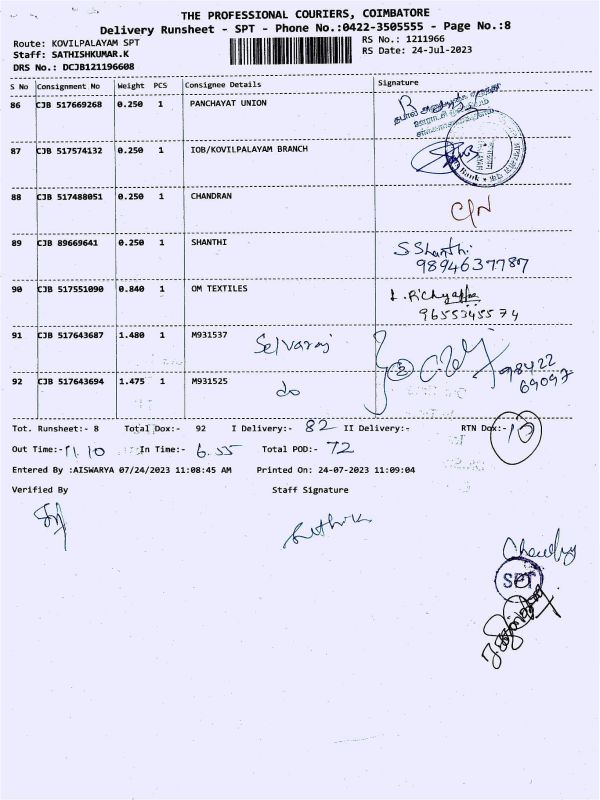 THE PROFESSIONAL COURIERS, COIMBATORE
Delivery Runsheet - SPT - Phone No.:0422-3505555 - Page No.:8
Route: KOVILPALAYAM SPT RS No.: 1211966
Staff: SATHISHKUMAR.K RS Date: 24-Jul-2023
DRS No.: DCJB121196608
S No Consignment No Weight PCS Consignee Details Signature
86 CJB 517669268 0.250 1 PANCHAYAT UNION
87 CJB 517574132 0.250 1 IOB/KOVILPALAYAM BRANCH
Bank
88 CJB 517488051 0.250 1 CHANDRAN C/N
89 CJB 89669641 0.250 1 SHANTHI S Shanthi
9894637787
90 CJB 517551090 0.840 1 OM TEXTILES
9655345574
91 CJB 517643687 1.480 1 M931537 Selvaraj
98422
69097
92 CJB 517643694 1.475 1 M931525 do
Tot. Runsheet:- 8 Total Dox:- 92 I Delivery:- 82 II Delivery:- RTN Dox:- 10
Out Time:- 11.10 In Time:- 6.55 Total POD:- 72
Entered By :AISWARYA 07/24/2023 11:08:45 AM Printed On: 24-07-2023 11:09:04
Verified By Staff Signature
SPT